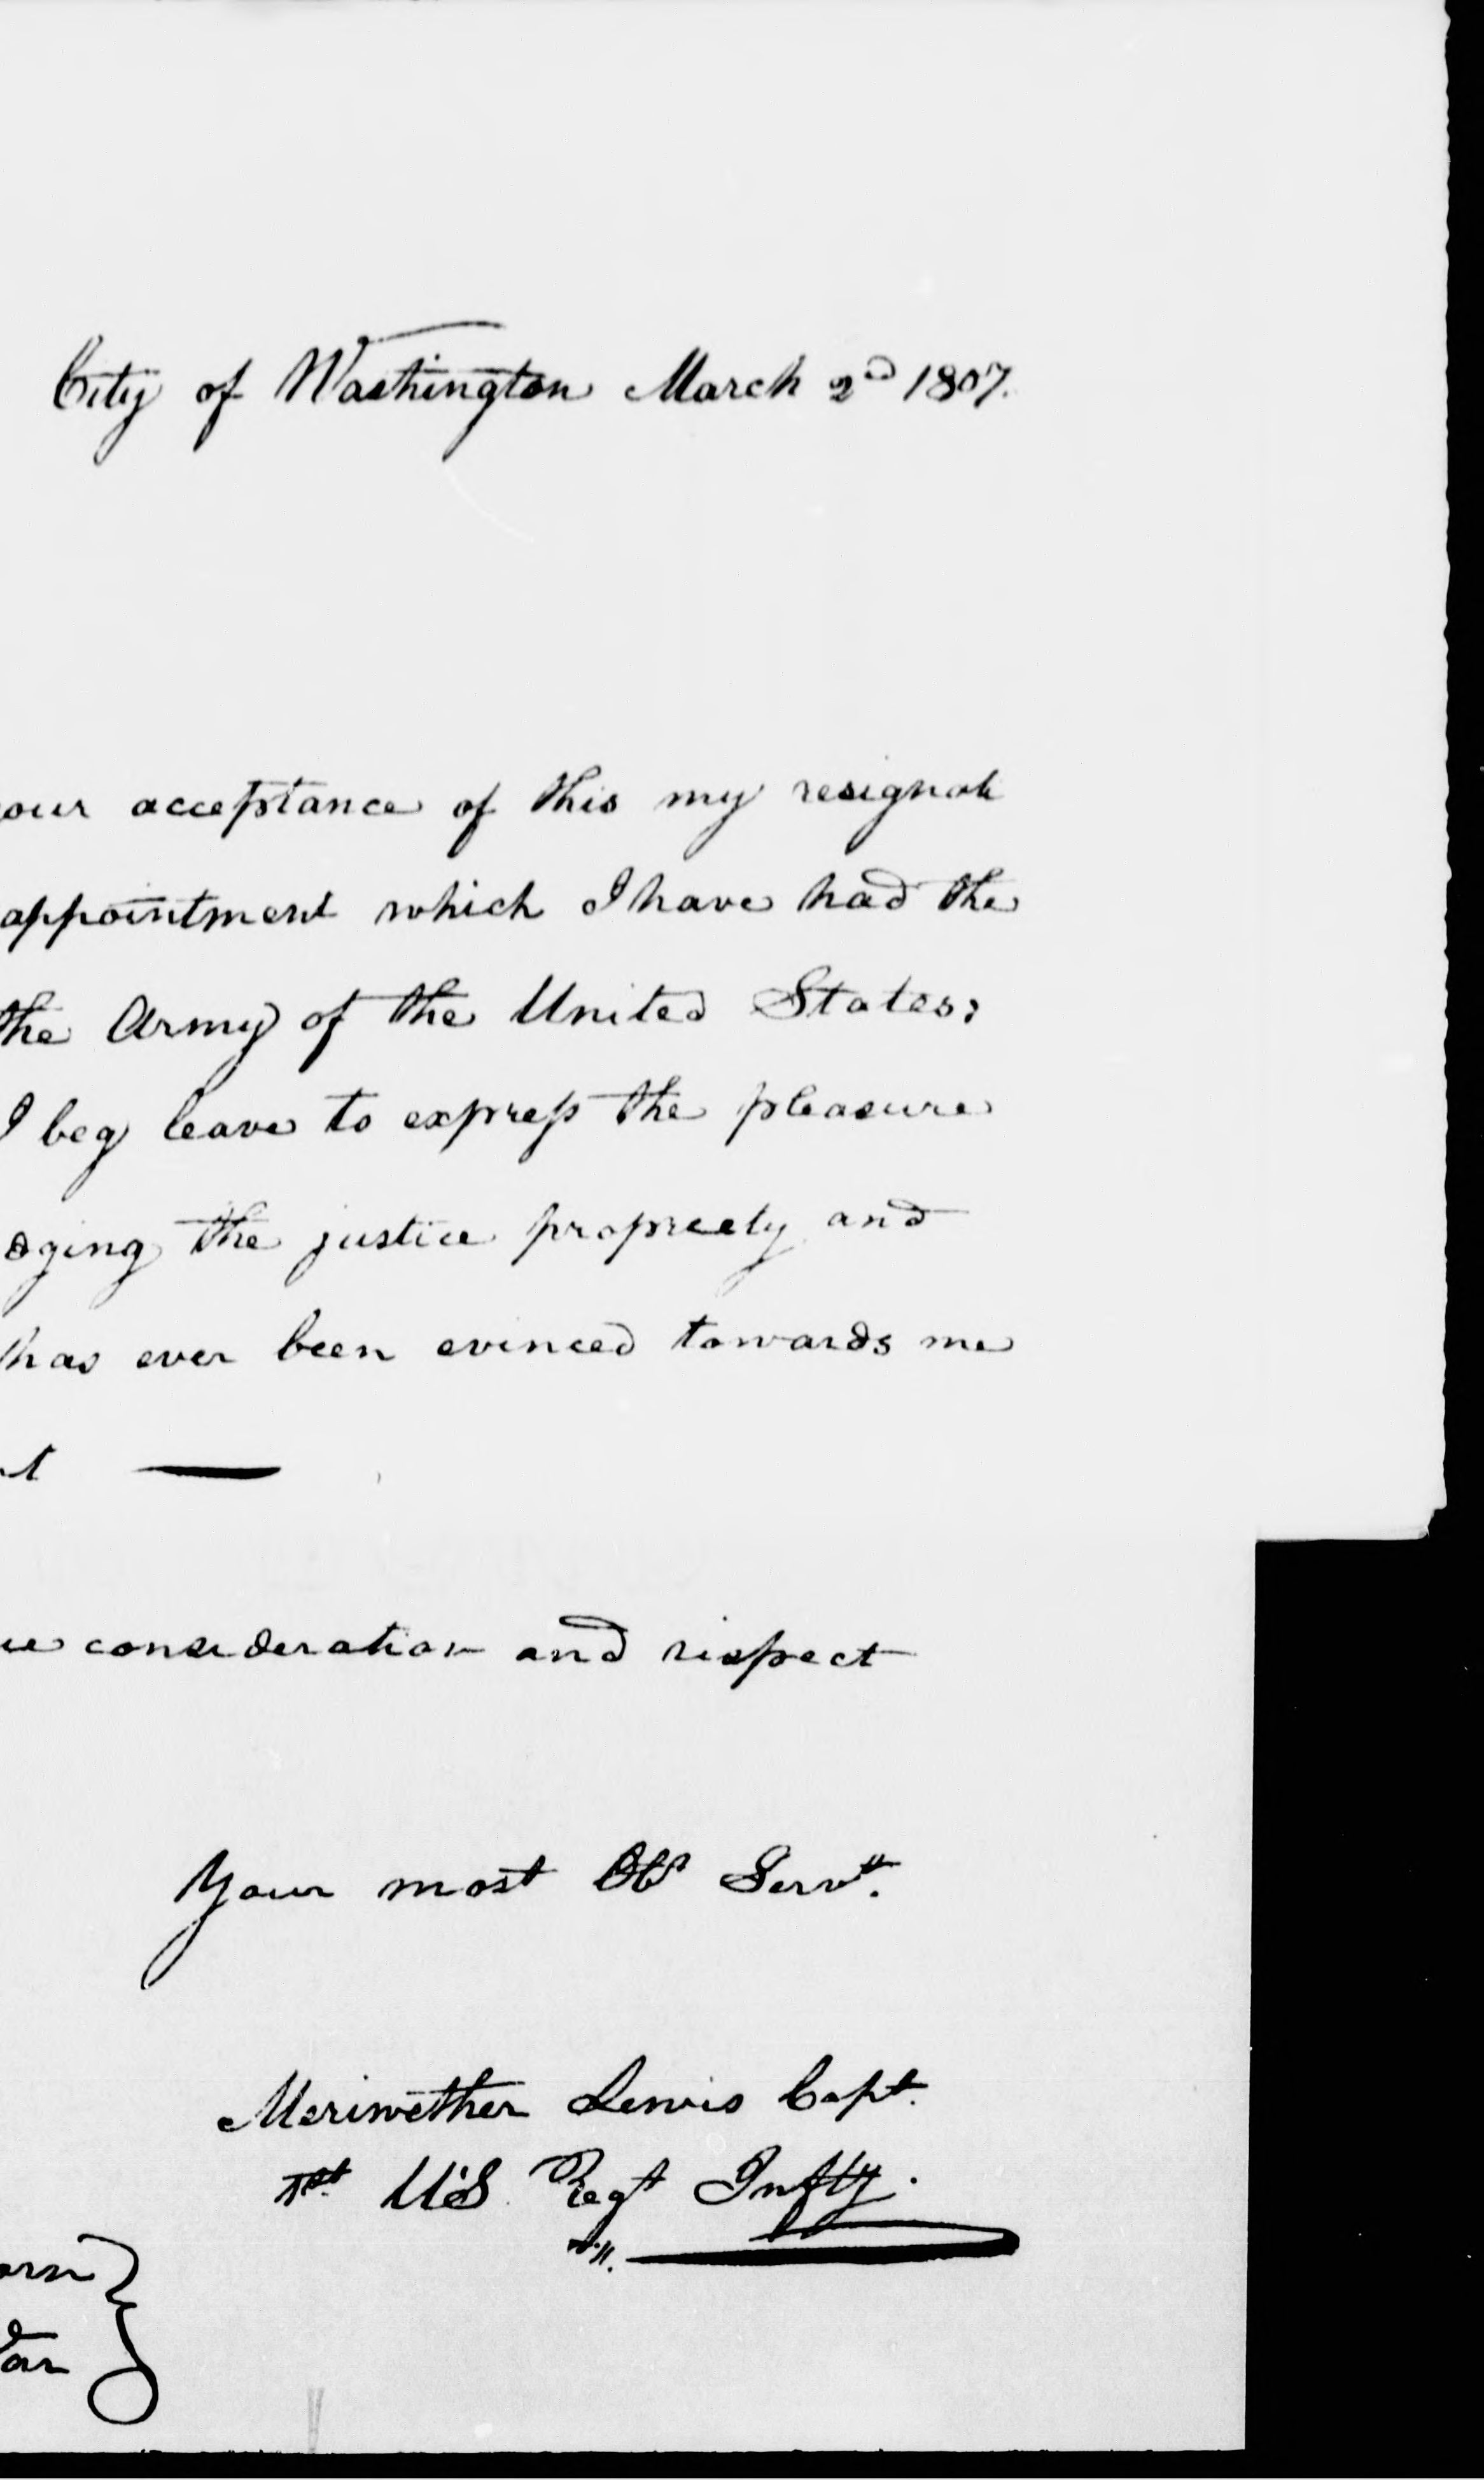 City of Washington March 2nd 1807.
our acceptance of this my resignati
appointment which I have had the
the Army of the United States;
I beg leave to express the pleasure
dging the justice propriety and
has ever been evinced towards me
t —
consideration and respect
Your most Obt Servt.
Meriwether Lewis Capt.
1st. U'S. Regt Infty.
orn }